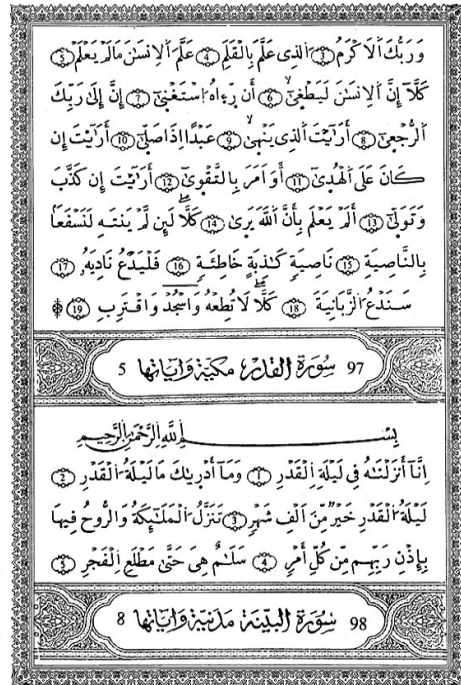 وَرَبُّكَ اَلَاكْرَمُ 3 اَلذِى عَلَّمَ بِالْقَلَمِ 4 عَلَّمَ اَلِانسَٰنَ مَالَمْ يَعْلَمْ 5
كَلَّآ إِنَّ اَلِانسَٰنَ لَيَطْغِىٰٓ 6 أَن رِّءِاهُ اُسْتَغْنِىٰٓ 7 إِنَّ إِلَىٰ رَبِّكَ
اَلرُّجْعِىٰٓ 8 أَرَآيْتَ اَلذِى يَنْهِىٰ 9 عَبْدًا اِذَا صَلِّىٰٓ 10 أَرَآيْتَ إِن
كَانَ عَلَى اَلْهُدِىٰٓ 11 أَوَ اَمَرَ بِالتَّقْوِىٰٓ 12 أَرَآيْتَ إِن كَذَّبَ
وَتَوَلِّىٰٓ 13 أَلَمْ يَعْلَم بِأَنَّ اَللَّهَ يَرِىٰ 14 كَلَّا لَئِن لَّمْ يَنتَهِ لَنَسْفَعاً
بِالنَّاصِيَةِ 15 نَاصِيَةٍ كَٰذِبَةٍ خَاطِئَةٍ 16 فَلْيَدْعُ نَادِيَهُۥ 17
سَنَدْعُ اُلزَّبَانِيَةَ 18 كَلَّا لَا تُطِعْهُ وَاسْجُدْ وَاقْتَرِب 19
97 سُورَةُ القَدْرِ مكية وءاياتها 5
بِسْمِ اِللَّهِ اِلرَّحْمَٰنِ اِلرَّحِيمِ
اِنَّآ أَنزَلْنَٰهُ فِى لَيْلَةِ اِلْقَدْرِ 1 وَمَآ أَدْرِيٰكَ مَا لَيْلَةُ اُلْقَدْرِ 2
لَيْلَةُ اُلْقَدْرِ خَيْرٌ مِّنَ اَلْفِ شَهْرٍ 3 تَنَزَّلُ اُلْمَلَٰٓئِكَةُ وَالرُّوحُ فِيهَا
بِإِذْنِ رَبِّهِم مِّن كُلِّ أَمْرٍ 4 سَلَٰمٌ هِىَ حَتَّىٰ مَطْلَعِ اِلْفَجْرِ 5
98 سُورَةُ البَيِّنَةِ مدنية وءاياتها 8